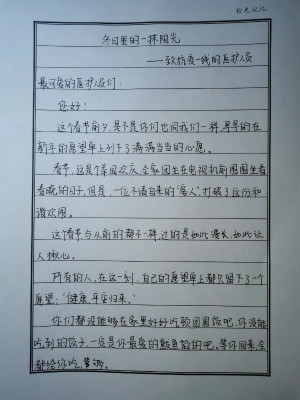 拾光记忆
冬日里的一抹阳光
——致抗疫一线的医护人员
最可爱的医护人员们：
您好！
这个春节前夕，是不是你们也同我们一样，早早的在
新年的愿望单上列下了满满当当的心愿。
春节，这是个举国欢庆，全家团坐在电视机前围围坐看
春晚的日子，但是，一位不请自来的“客人”，打破了这份和
谐欢闹。
这个春节与从前的都不一样，过的是如此漫长，如此让
人揪心。
所有的人，在这一刻，自己的愿望单上都只留下了一个
愿望：“健康，平安归来。”
你们都没能够在家里好好吃顿团圆饭吧，你没能
吃到的饺子，一定是你最爱的鲅鱼馅的吧。等你回来，全
都给你吃，管够。